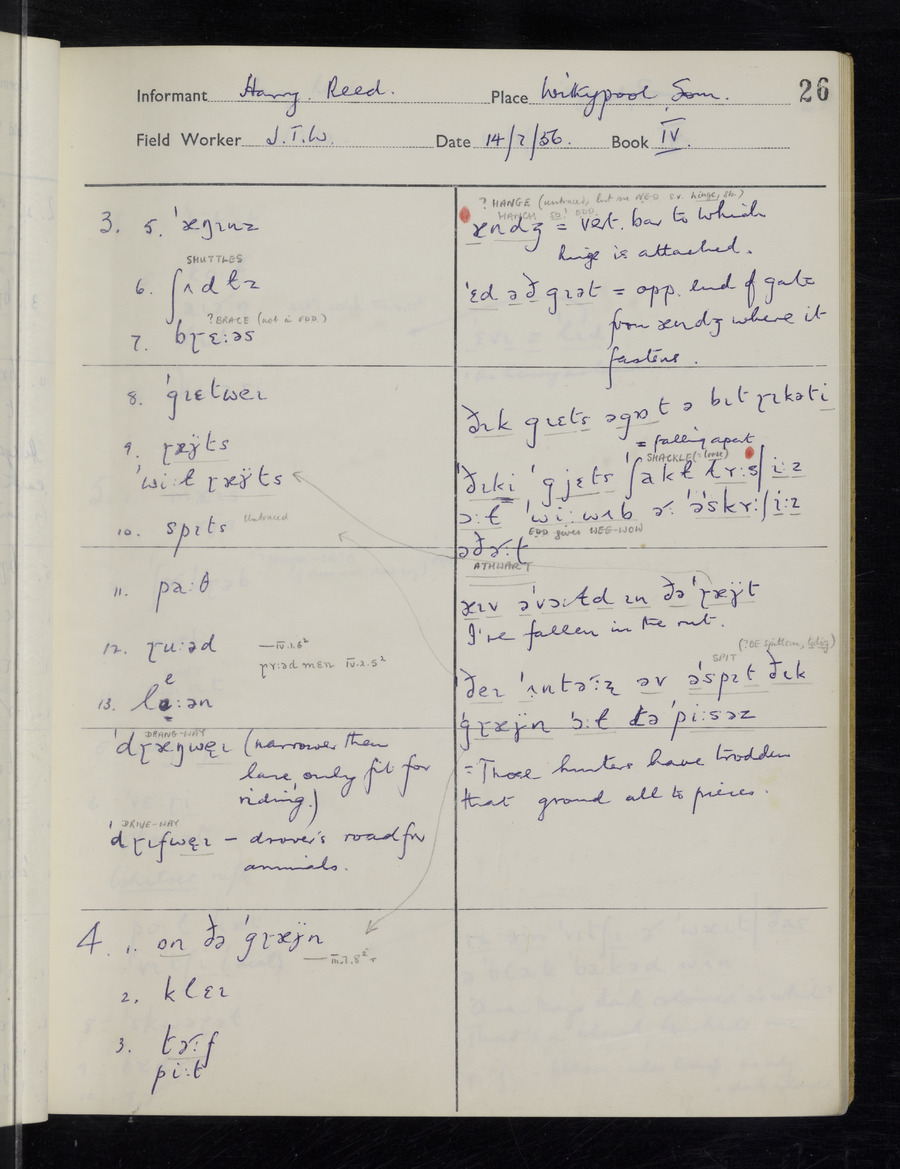 Informant Harry Reed. Place Withypool Som. 26
Field Worker J.T.W. Date 14/7/56. Book IV.
3. 5. ˈæŋɪnz
SHUTTLES
6. ʃʌdɫz
? BRACE (not in EDD)
7. bɽɛːəs
8. ˈgɪɛtweɪ
9. ɽæÿts
ˈwiːɫ ɽæÿts
10. spɪts Untraced
11. paːθ
12. ɽuːəd — IV.1.6²
ɽʏːəd mɛn IV.2.5²
e
13. leːən
DRANG-WAY
ˈdɽæŋwẹɪ (narrower than
lane, only fit for
riding.)
DRIVE-WAY
ˈdɽɪfwẹɪ – drover's road for
animals.
4. 1. on ðə ˈgɽæÿn
2. klɛɪ
3. təːf
piːt
? HANGE (untraced, but see NED s.v. hinge, sb.)
HANCH sb.¹ EDD.
ændʒ = vert. bar to which
hinge is attached.
ˈɛd ə ð gɪət = opp. end of gate
from ændʒ where it
fastens.
ðɪk gɪɛts əgɒt ə bɪt ɽɪkəti
= falling apart
SHACKLE (= loose)
ˈðɪki ˈgjɛts ˈʃakɫ
EDD gives WEE-WOW
ATHWART
æɪv əˈvɔːɫd ɪn ðə ˈɽæÿt
I've fallen in the rut.
(?OE spittan, to dig)
SPIT
ˈðeɪ ˈʌntəːz əv əˈspɪt ðɪk
ˈgɽæÿn ɔːɫ tə ˈpiːsəz
= Those hunters have trodden
that ground all to pieces.